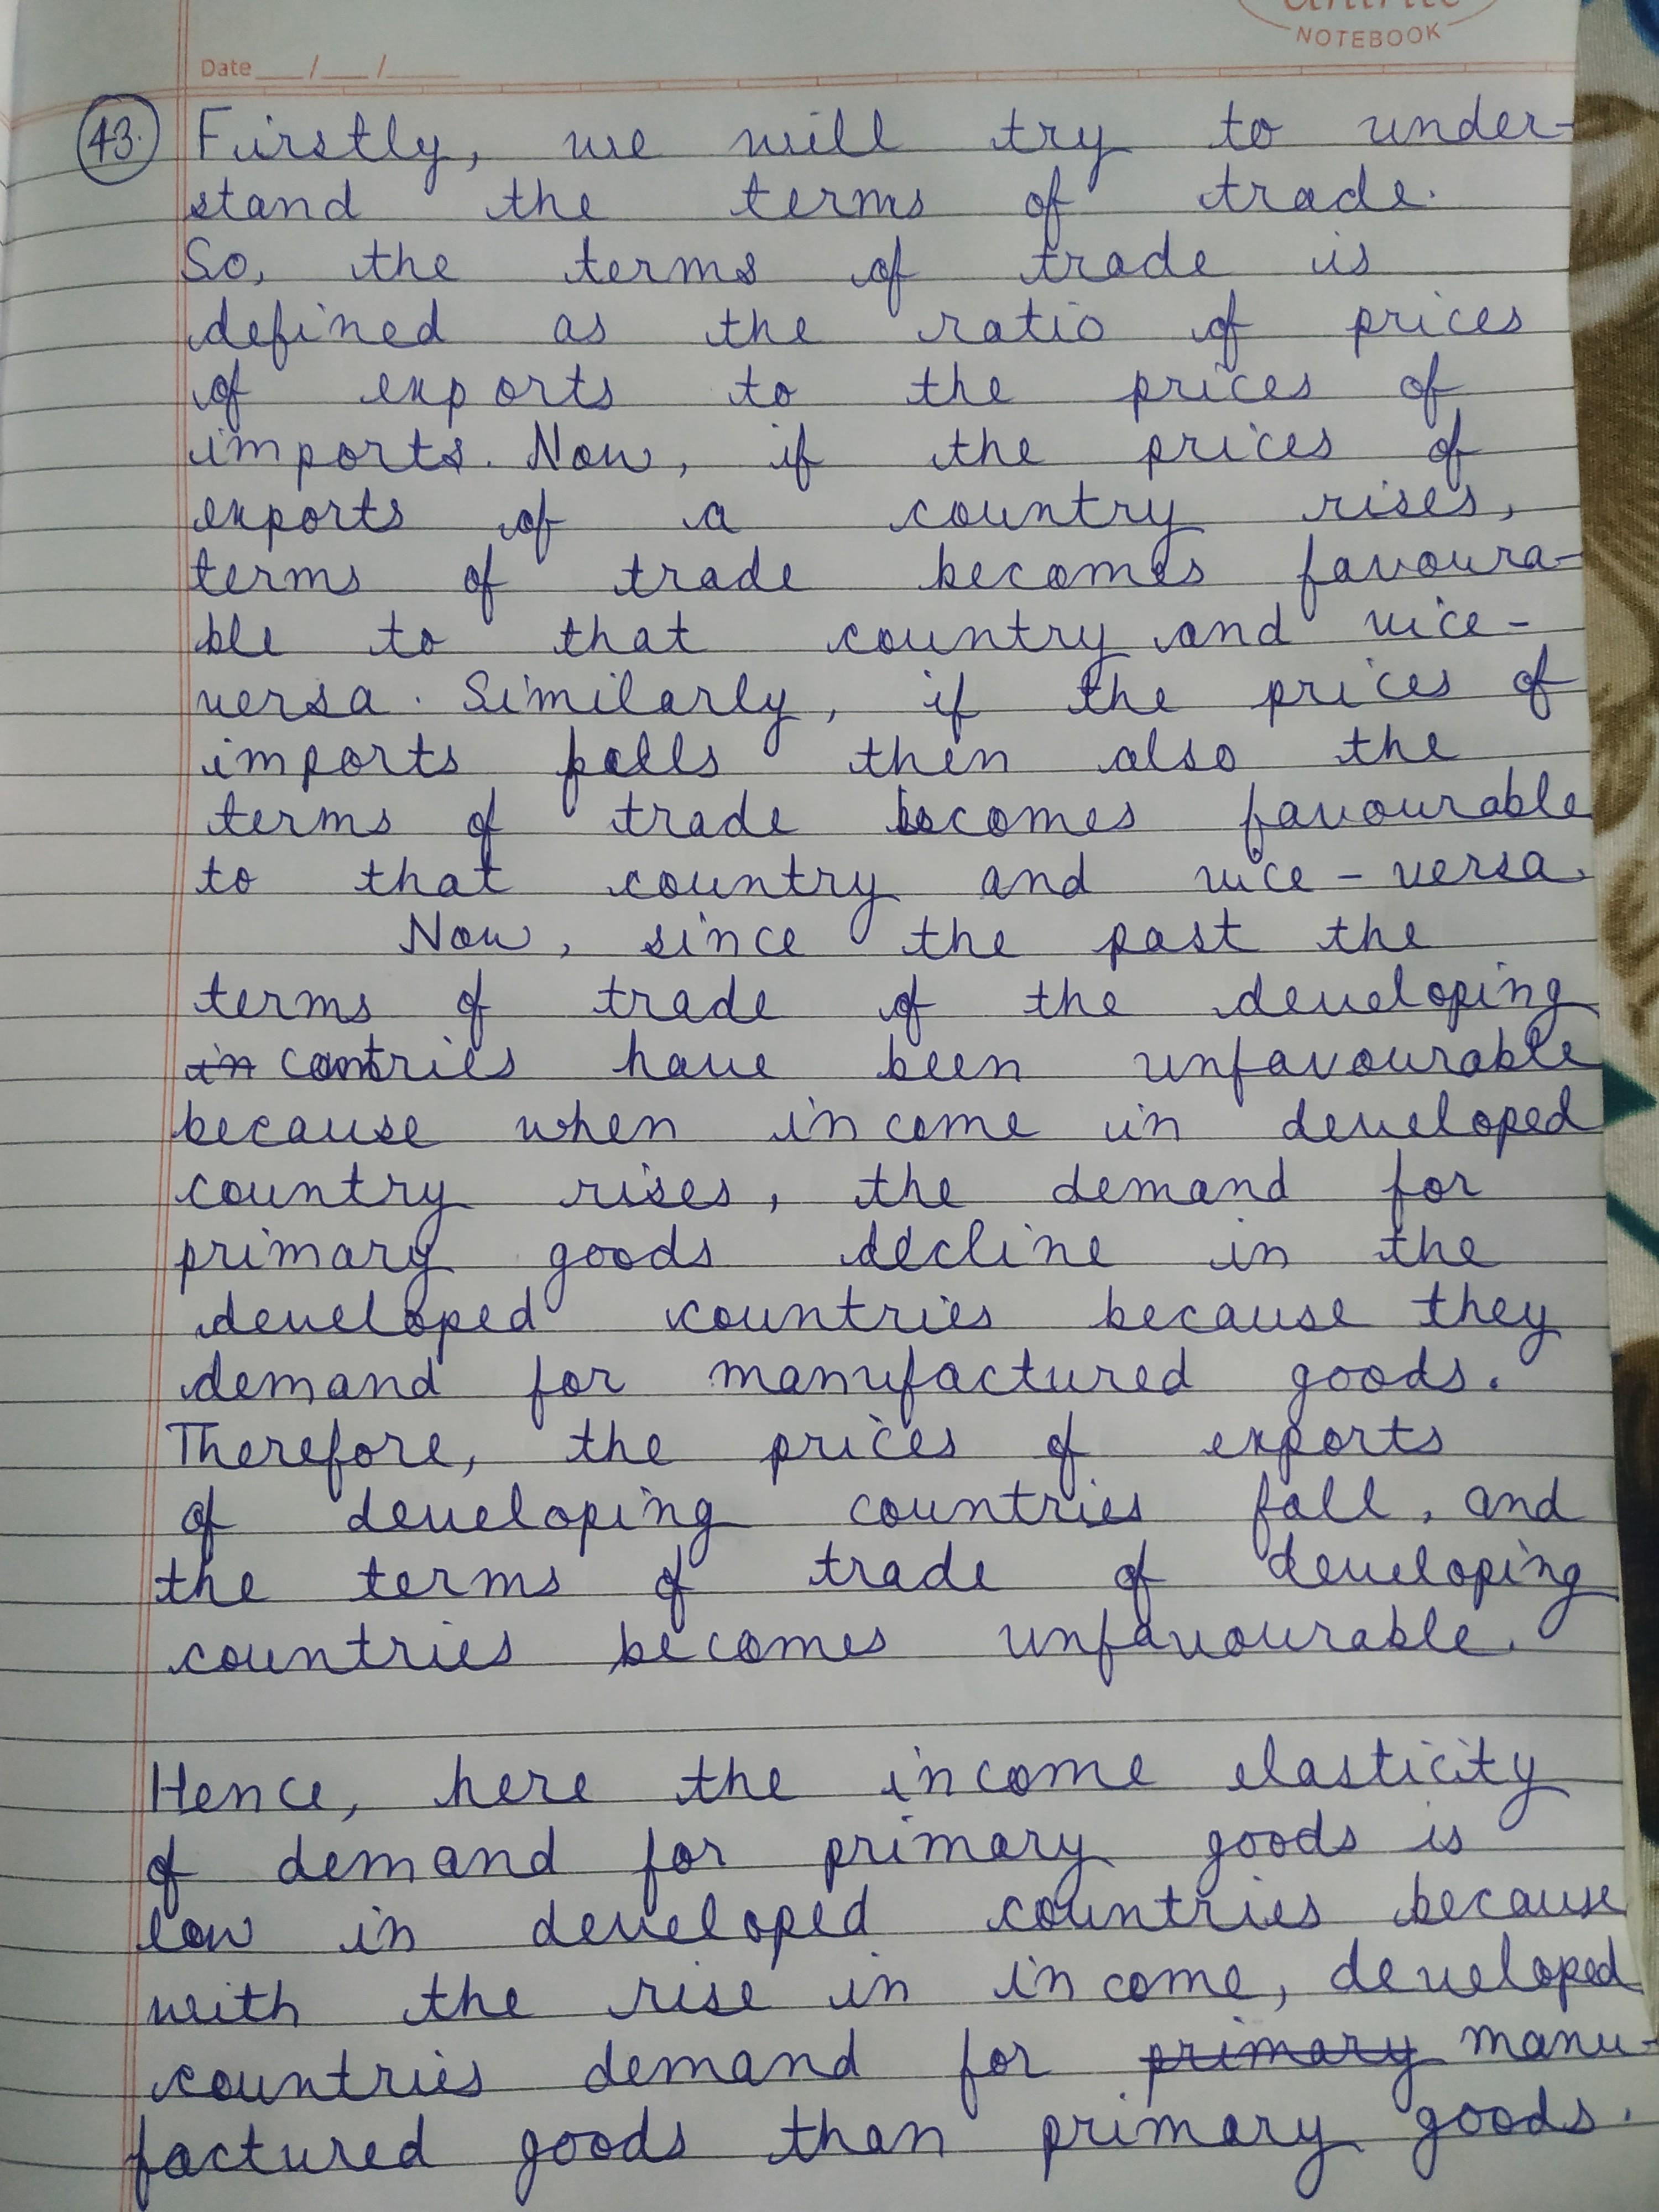 NOTEBOOK
Date __/__/____
43. Firstly, we will try to under-
stand the terms of trade.
So, the terms of trade is
defined as the ratio of prices
of exports to the prices of
imports. Now, if the prices of
exports of a country rises,
terms of trade becomes favoura-
ble to that country and vice-
versa. Similarly, if the prices of
imports falls then also the
terms of trade becomes favourable
to that country and vice-versa.
Now, since the past the
terms of trade of the developing
in contries have been unfavourable
because when income in developed
country rises, the demand for
primary goods decline in the
developed countries because they
demand for manufactured goods.
Therefore, the prices of exports
of developing countries fall, and
the terms of trade of developing
countries becomes unfavourable.
Hence, here the income elasticity
of demand for primary goods is
low in developed countries because
with the rise in income, developed
countries demand for primary manu-
factured goods than primary goods.